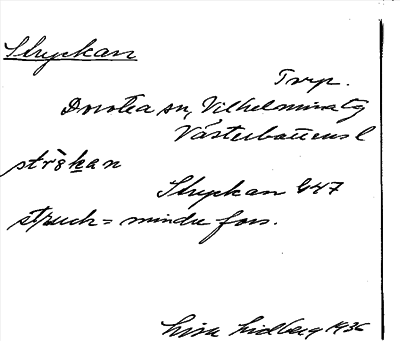 Stryckan
Trp.
Dorotea sn, Vilhelmina tg
Västerbottens l
Stryckan 647
struck = mindre fors.
Lisa Lidberg 1936